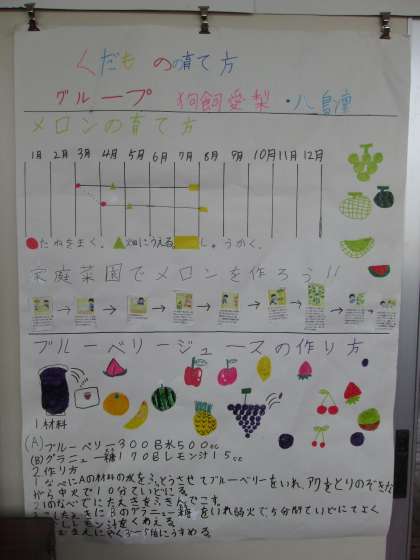 くだもの の育て方
グループ 狗飼愛梨・八島凛
メロンの育て方
1月 2月 3月 4月 5月 6月 7月 8月 9月 10月 11月 12月
たねをまく。 畑にうえる。 しゅうかく。
家庭菜園でメロンを作ろう!!
ブルーベリージュースの作り方
1 材料
(A) ブルーベリー300g 水500cc
(B) グラニュー糖170g レモン汁15cc
2 作り方
1 なべにAの材料の水をふっとうさせてブルーベリーをいれ、アクをとりのぞきな
がら中火で10分ていどにる。
2 1のなべでにたえきをふきんでこす。
にBのグラニュー糖をいれ弱火で5分間ていどにてよく
レモン汁をくわえる。
にうすめる。